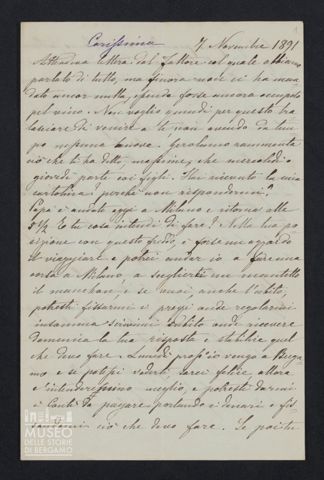 Carissima
7 Novembre 1891
Attendiamo lettera dal Fattore col quale abbiamo
parlato di tutto, ma finora non ci ha man
dato ancor nulla, essendo forse ancora occupato
pel vino. Non voglio quindi per questo tra
lasciare di venire a te non avendo da tem
po nessuna nuova. Girolamo rammenta
ciò che ti ha detto, massime, che mercoledì o
giovedì parte coi figli. Hai ricevuto la mia
cartolina? perchè non rispondermi?
Papà è andato oggi a Milano e ritorna alle
5 1/2 E tu cosa intendi di fare? Nella tua po
sizione con questo freddo, è forse un azzardo
il viaggiare e potrei andar io a fare una
corsa a Milano a scegliere un
il manchon, e se mai, anche l'abito,
potresti fissarmi i prezzi onde regolarmi
insomma scrivimi subito onde ricevere
domenica la tua risposta e stabilire quel
che devo fare. Lunedì pross.o vengo a Berga
mo e se potessi vederti sarei felice allora
c'intenderessimo meglio, e potresti darmi
i Conti da pagare portando i denari e fis
ciò che devo fare. Se
MUSEO
DELLE STORIE
DI BERGAMO